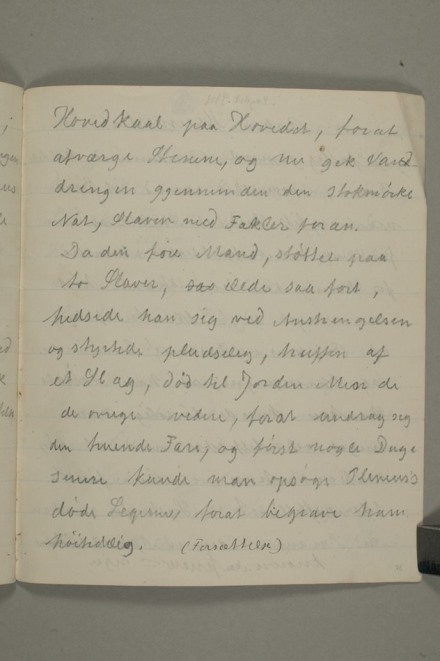 Hovedkaal paa Hovedet, forat
afværge Stenene, og nu gik Vand-
dringen gjennem den den stokmørke
Nat, Slaver med Fakler foran.
Da den føre Mand, støttet paa
to Slaver, ilede saa fort,
hedede han sig ved Anstrengelsen
og styrtede pludselig, truffen af
et Slag, død til Jorden. Men de
de øvrige videre, forat unddrag sig
den truende Fare, og først nogle Dage
senere kunde man opsøge Plinius's
døde Legeme forat begrave ham
høitidelig. (Forsættelse)